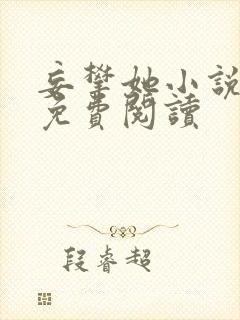 妄攀她小說
免費閱讀
段睿超